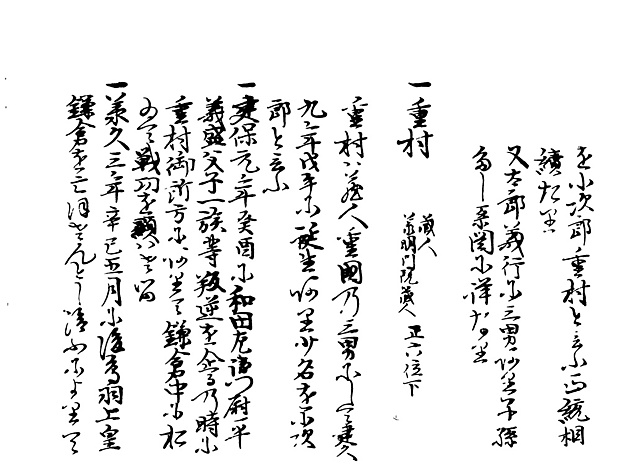 を小次郎重村と云ふ正統相
續たり
又太郎義行に三男有り子孫
多し系図に詳なり
一重村
蔵人
義明門院蔵人 正六位下
重村ハ蔵人重国乃三男にして建久
九年戊午に誕生有り少名を小次
郎と云ふ
一建保元年癸酉に和田左衛門尉平
義盛父子一族等叛逆を企る乃時に
重村御所方に有りて鎌倉中に於
て戦功を顕ハせり
一承久三年辛巳五月に後鳥羽上皇
鎌倉を亡ほさんとし